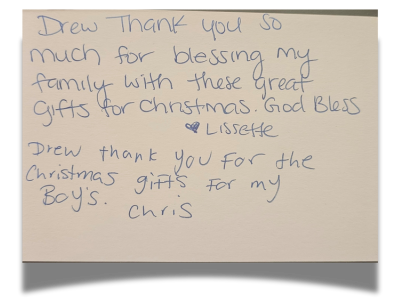 Drew Thank you so
much for blessing my
family with these great
gifts for Christmas. God Bless
♥ Lissette
Drew thank you For the
Christmas gifts for my
Boy's.
Chris